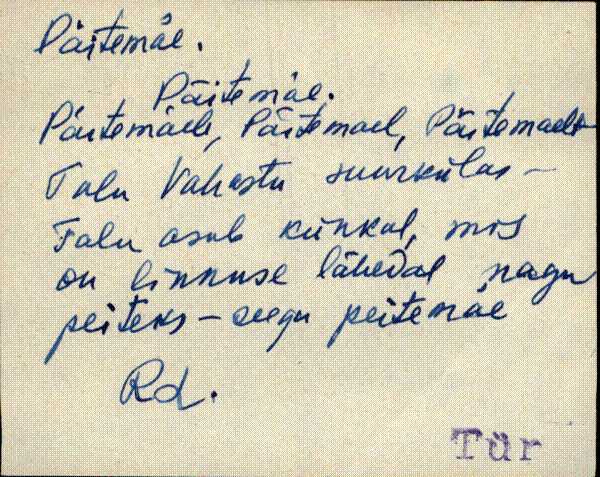 Päitemäe.
Päitemäe.
Päitemäele, Päitemael, Päitemaelt
Talu Vahastu suurkülas –
Talu asub künkal, mis
on linnuse lähedal nagu
peiteks – seegu peitemäe
Rd.
Tür